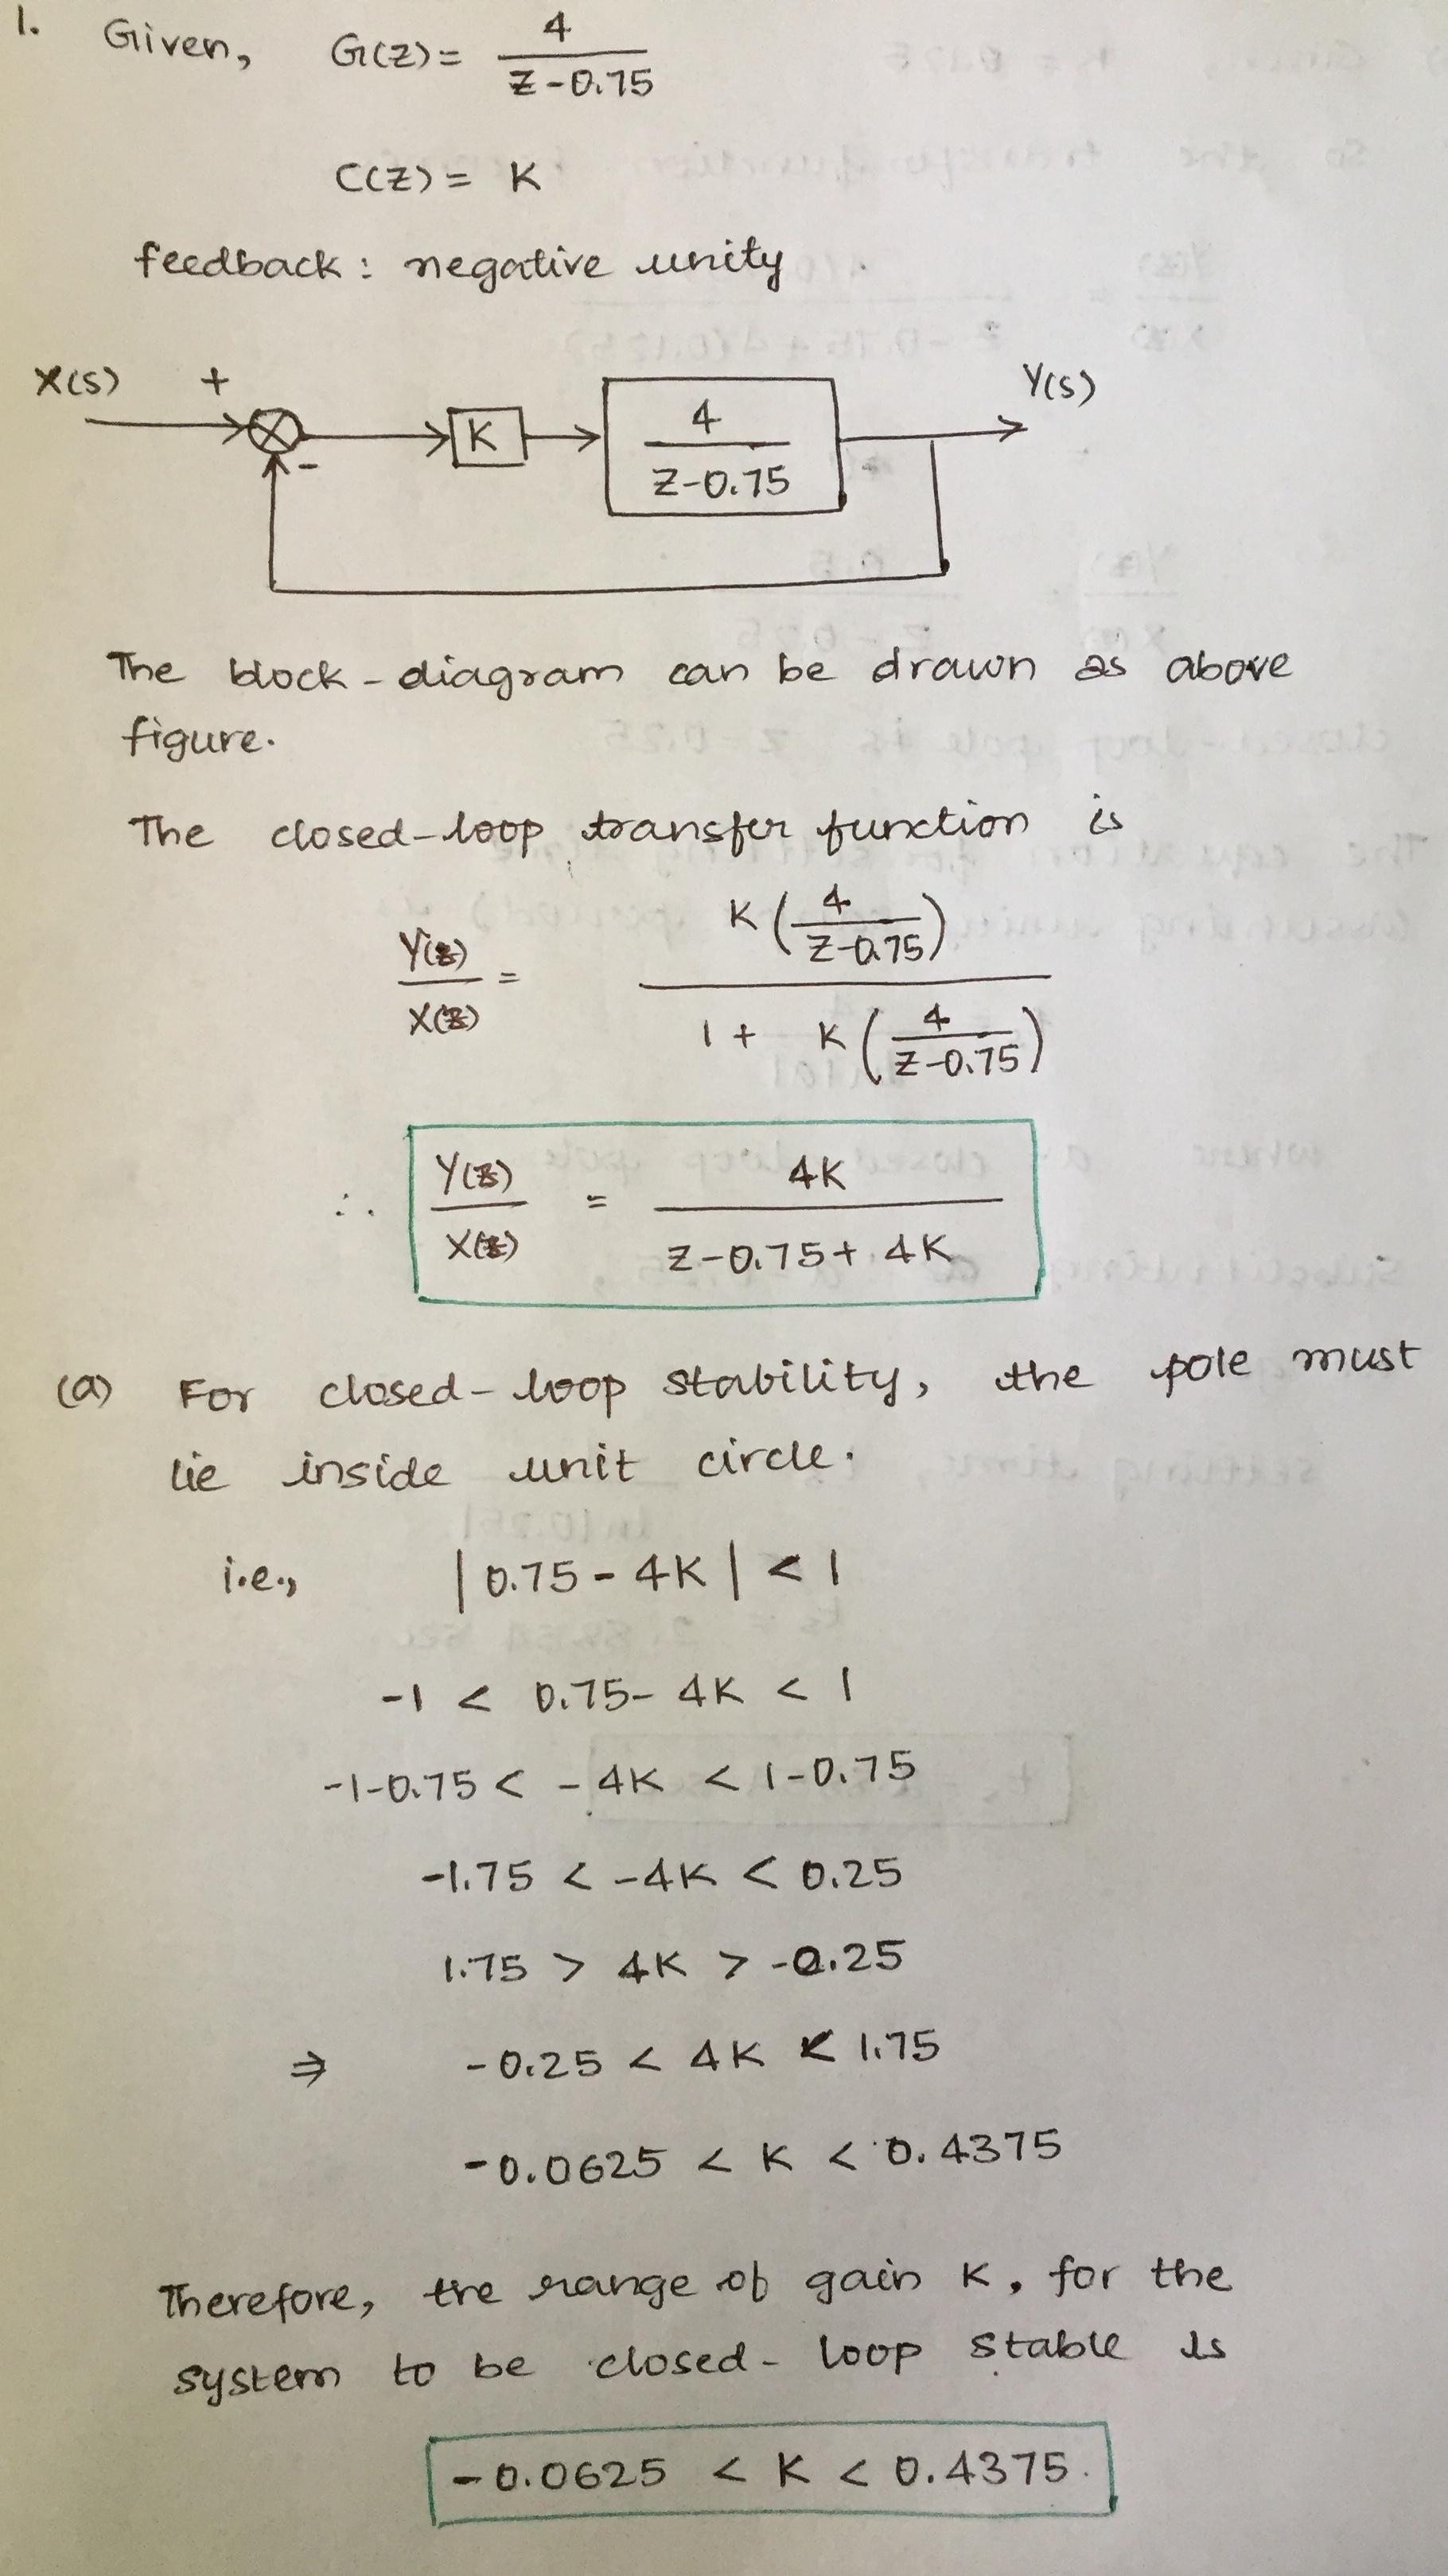 1. Given, G(z) = 4 / z - 0.75
C(z) = K
feedback: negative unity
X(s) + - K 4 / z-0.75 Y(s)
The block-diagram can be drawn as above
figure.
The closed-loop transfer function is
Y(z) / X(z) = K(4 / z-0.75) / 1 + K(4 / z-0.75)
∴ Y(z) / X(z) = 4K / z-0.75+4K
(a) For closed-loop stability, the pole must
lie inside unit circle.
i.e., |0.75-4K| < 1
-1 < 0.75-4K < 1
-1-0.75 < -4K < 1-0.75
-1.75 < -4K < 0.25
1.75 > 4K > -0.25
⇒ -0.25 < 4K < 1.75
-0.0625 < K < 0.4375
Therefore, the range of gain K, for the
system to be closed-loop stable is
-0.0625 < K < 0.4375.